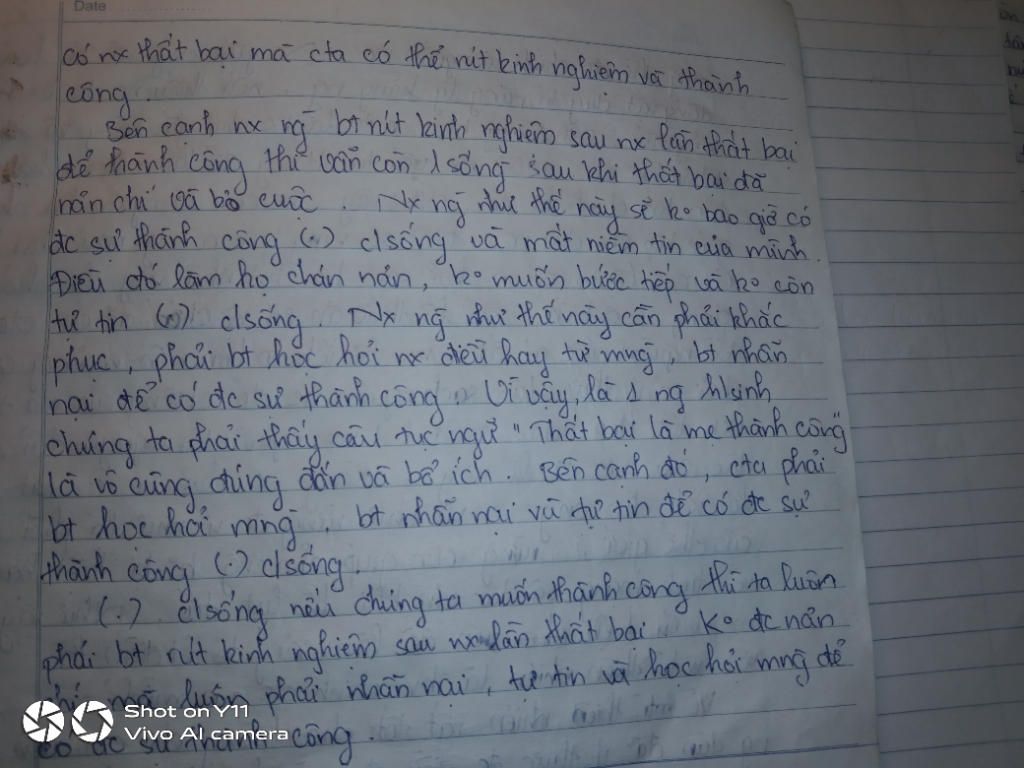 Date
có nx thất bại mà cta có thể rút kinh nghiệm và thành
công.
Bên cạnh nx ng bt rút kinh nghiệm sau nx lần thất bại
để thành công thì vẫn còn 1 sống sau khi thất bại đã
nản chí và bỏ cuộc. Nx ng như thế này sẽ ko bao giờ có
đc sự thành công (.) c/sống và mất niềm tin của mình.
Điều đó làm họ chán nản, ko muốn bước tiếp và ko còn
tự tin (.) c/sống. Nx ng như thế này cần phải khắc
phục, phải bt học hỏi nx điều hay từ mng, bt nhẫn
nại để có đc sự thành công. Vì vậy, là 1 ng h/sinh
chúng ta phải thấy câu tục ngữ "Thất bại là mẹ thành công"
là vô cùng đúng đắn và bổ ích. Bên cạnh đó, cta phải
bt học hỏi mng, bt nhẫn nại và tự tin để có đc sự
thành công (.) c/sống.
(.) c/sống nếu chúng ta muốn thành công thì ta luôn
phải bt rút kinh nghiệm sau nx lần thất bại. Ko đc nản
chí mà luôn phải nhẫn nại, tự tin và học hỏi mng để
có đc sự thành công.
Shot on Y11
Vivo AI camera